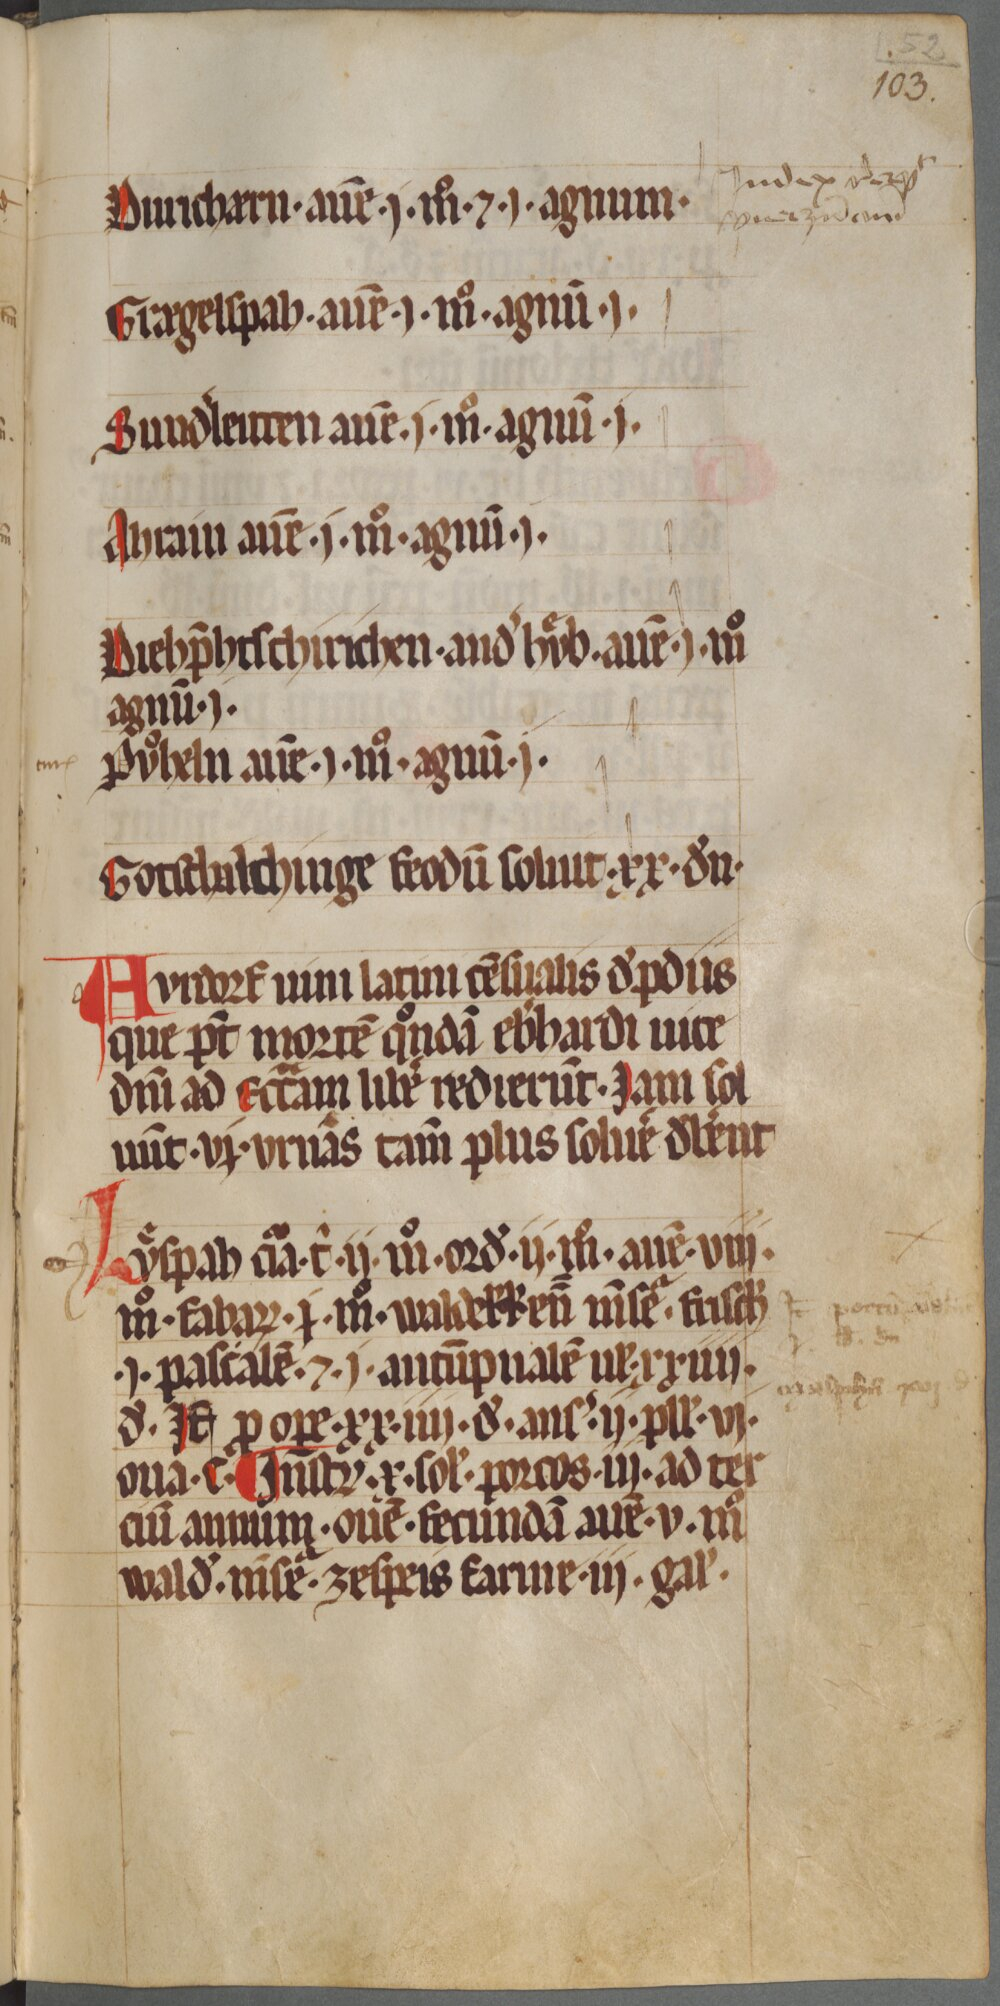 .52
103.
Duricharn · auē · j · m̊ · 7 · j · agnum ·
Index
Gragelspah · auē · j · m̊ · agnū · j ·
Sundˀleuten auē · j · m̊ · agnū · j ·
Ahrain auē · j · m̊ · agnū · j ·
Diehp̄htschirichen · andˀ hůb · auē · j · m̊
agnū · j ·
půheln auē · j · m̊ · agnū · j ·
Gotschalchinge feodū soluit · xx · dˀn ·
Avrdorf uini latini cēsualis dˀ pdiis
que pt̄ mortē qͦndā ebˀhardi uite
dn̄i ad eccl̄am libˀe redierūt · Jam sol
uūt · vj · vrnas tam̄ plus soluˀe dˀbˀent
Lyͤspah cͥa · t̄ · ij · m̊ · ordˀ · ij · m̊ · auē · viij ·
m̊ · fabarͮ · j · m̊ · en̄ mēsͣ · frisch
· j · pascalē · 7 · j · autūpnalē uł · xxiiij ·
dˀ · It̄ p ope · xx · iiij · dˀ · ansˀ · ij · pll̄ · vj ·
oua · c · Jn̄stͮ · x · solˀ · porcos · iij · ad ter
ciū annum · ouē · fecundā auē · v · m̊
waldˀ · mēsͣ · zespeis farine · iij · galˀ ·